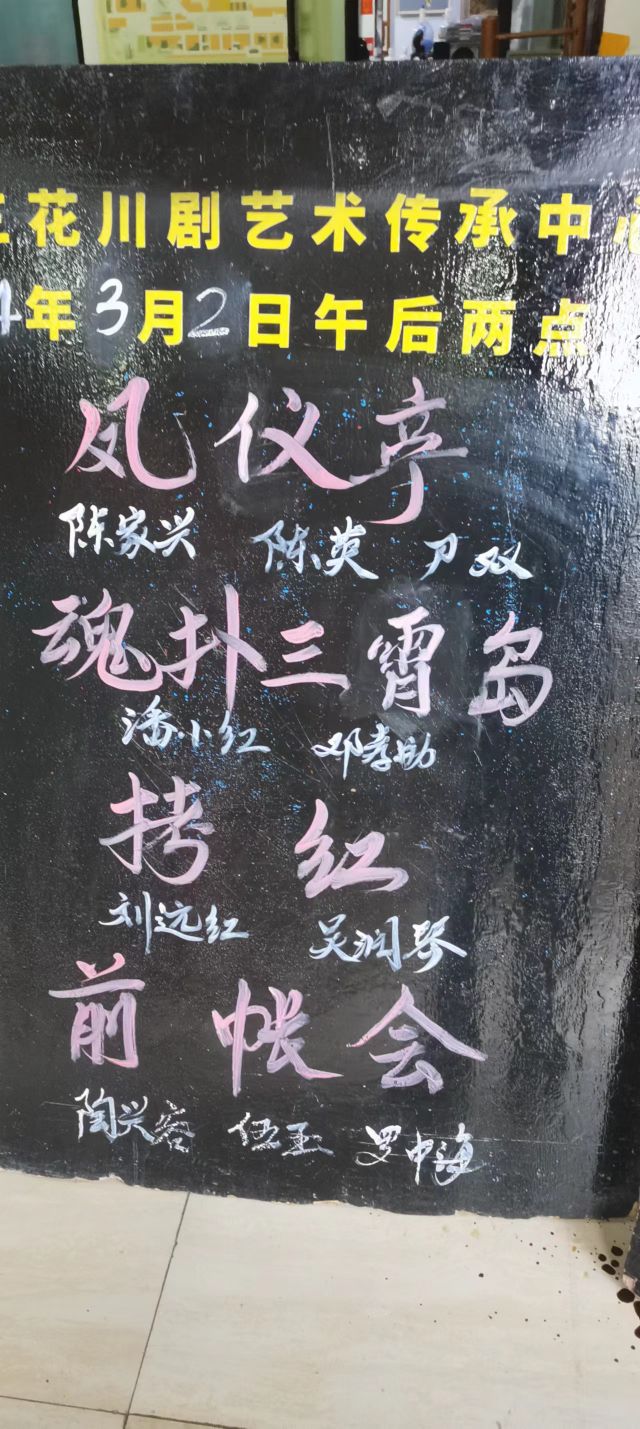 三花川剧艺术传承中心
4年3月2日午后两点
凤仪亭
陈家兴 陈英 尹双
魂扑三霄岛
潘小红 邓孝助
拷红
刘远红 吴润琴
前帐会
陶兴容 伍玉 罗中海